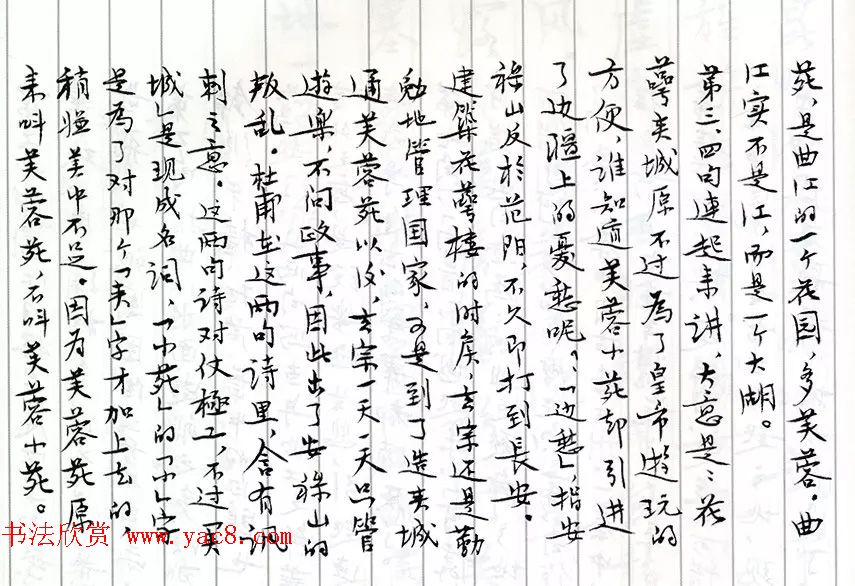 苑，是曲江的一个花园，多芙蓉。曲
江实不是江，而是一个大湖。
第三、四句連起来讲，大意是：花
萼夹城原不过為了皇帝遊玩的
方便，誰知道芙蓉小苑却引進
了边疆上的憂愁呢。「边愁」指安
祿山反於范阳，不久即打到長安。
建築花萼楼的时候，玄宗还是勤
勉地管理国家，可是到了造夹城
通芙蓉苑以後，玄宗一天一天只管
遊樂，不问政事，因此出了安祿山的
叛乱。杜甫在这两句诗里，含有讽
刺之意。这两句诗对仗極工，不过「夹
城」是现成名词，「小苑」的「小」字
是為了对那个「夹」字才加上去的，
稍嫌美中不足。因為芙蓉苑原
来叫芙蓉苑，不叫芙蓉小苑。
书法欣赏 www.yac8.com